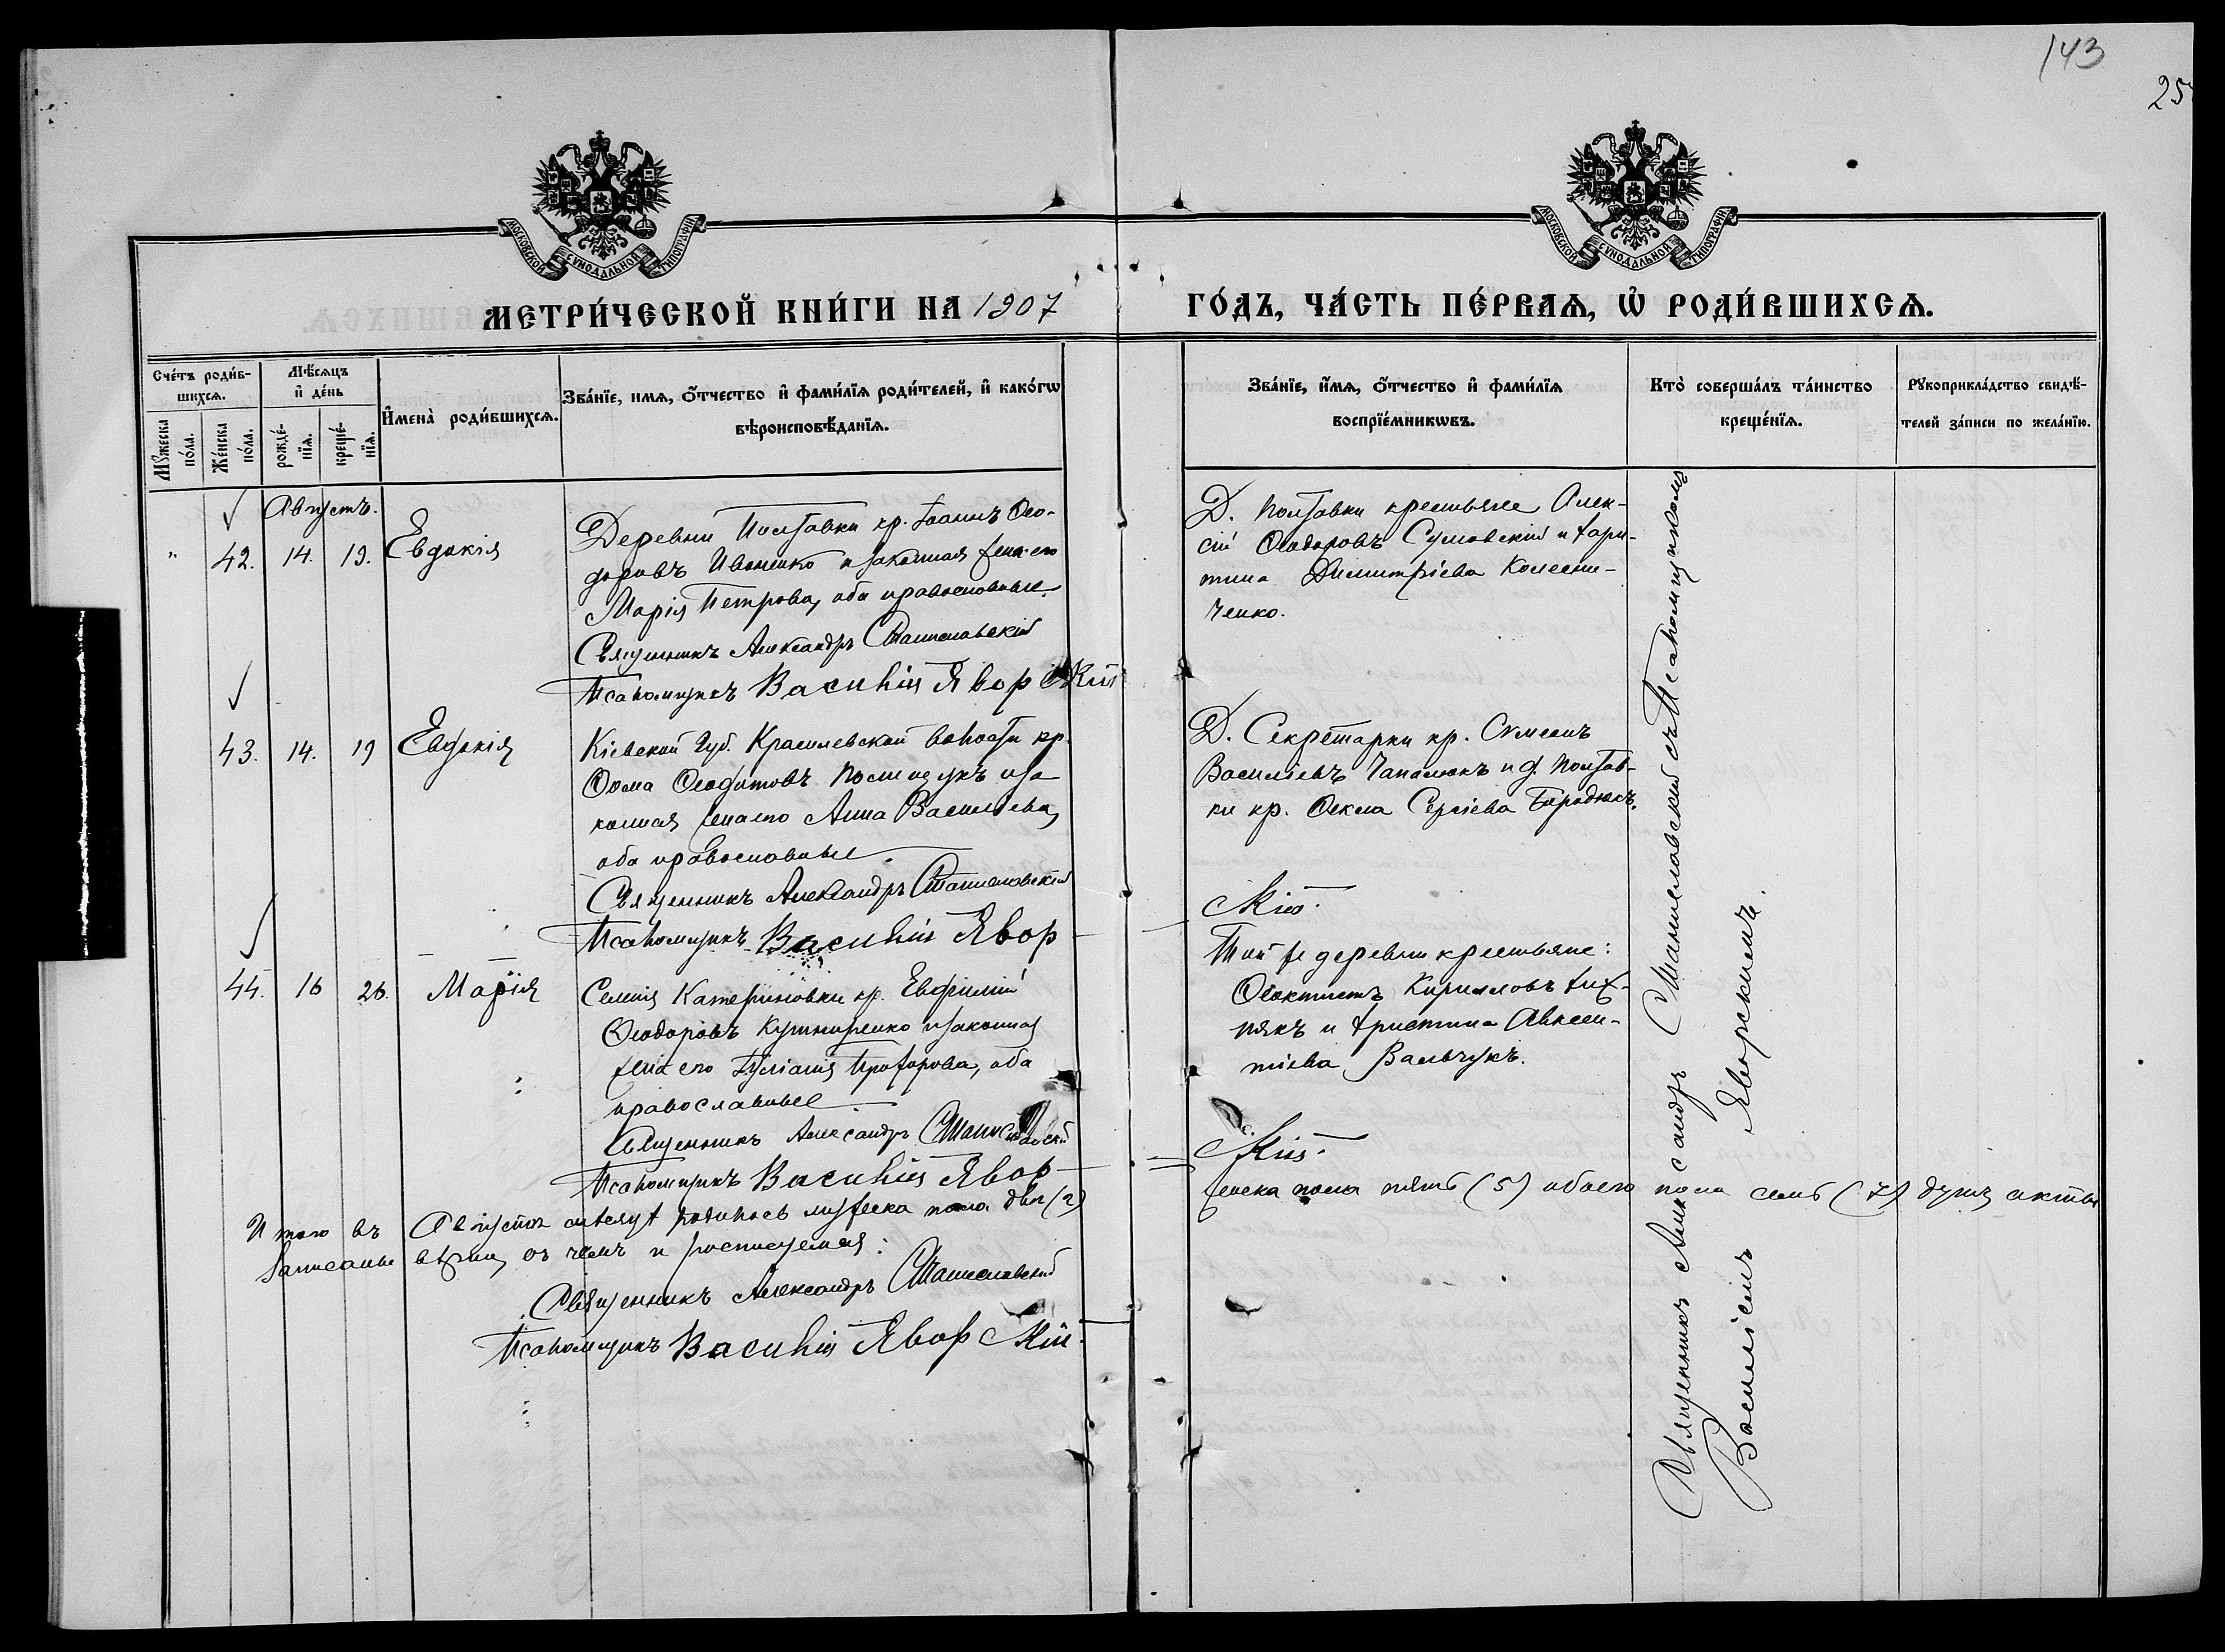 143
25
МОСКОВСКОЙ СѴНОДАЛЬНОЙ ТИПОГРАФІИ
МОСКОВСКОЙ СѴНОДАЛЬНОЙ ТИПОГРАФІИ
МЕТРИ́ЧЕСКОЙ КНИ́ГИ НА 1907 ГО́ДЪ, ЧА́СТЬ ПЕ́РВАѦ, Ѽ РОДИ́ВШИХСѦ.
Сче́тъ роди́в-
шихсѧ.
Мꙋ́жеска по́ла.
Же́нска по́ла.
Мѣ́сѧцъ и҆ де́нь
рожде́-нїѧ.
креще́-нїѧ.
И҆мена̀ роди́вшихсѧ.
Зва́нїе, имѧ, ѻ҆́тчество и҆ фами́лїѧ роди́телей, и҆ како́гѡ
вѣроисповѣ́данїѧ.
Зва́нїе, и҆́мѧ, ѻ҆́тчество и҆ фами́лїѧ
воспрїе́мникѡвъ.
Кто̀ соверша́лъ та́инство
креще́нїѧ.
Рꙋкоприкла́дство свидѣ́-
телей за́писи по жела́нїю.
Августъ.
" 42. 14. 19. Евдокія
Деревни Полтавки кр. Іоаннъ Ѳео-
доровъ Иваненко и законная жена его
Марія Петрова, оба православные.
Священникъ Александръ Станиславскій
Псаломщикъ Василій Яворскій
Д. Полтавки крестьяне Алек-
сій Ѳеодоровъ Сумовскій и Хари-
тина Димитріева Колесни-
ченко.
43. 14. 19 Евдокія
Кіевской Губ. Красилевской волости кр.
Ѳома Ѳеодотовъ и за
конная жена его Анна Васильева,
оба православные.
Священникъ Александръ Станиславскій
Псаломщикъ Василій Явор-
Д. Секретарки кр. Симеонъ
Василіевъ Чапалюкъ и д. Полтав-
ки кр. Ѳекла Сергіева Бородюкъ.
скій.
44. 16 26. Марія
Селенія Катериновки кр. Евфимій
Ѳеодоровъ Кушниренко и законная
жена его Іуліанія Прохорова, оба
православные.
Священникъ Александръ Станиславскій
Псаломщикъ Василій Явор-
Той же деревни крестьяне:
Ѳеоктистъ Кирилловъ Лих-
някъ и Христина Авксен-
тіева Вальчукъ.
скій.
Священникъ Александръ Станиславскій съ Псаломщикомъ
Василіемъ Яворскимъ.
Итого въ Августѣ мѣсяцѣ родилось мужеска пола два (2) женска пола пять (5) обоего пола семь (7) душъ акты
записаны вѣрно, въ чемъ и росписуемся:
Священникъ Александръ Станиславскій
Псаломщикъ Василій Яворскій.